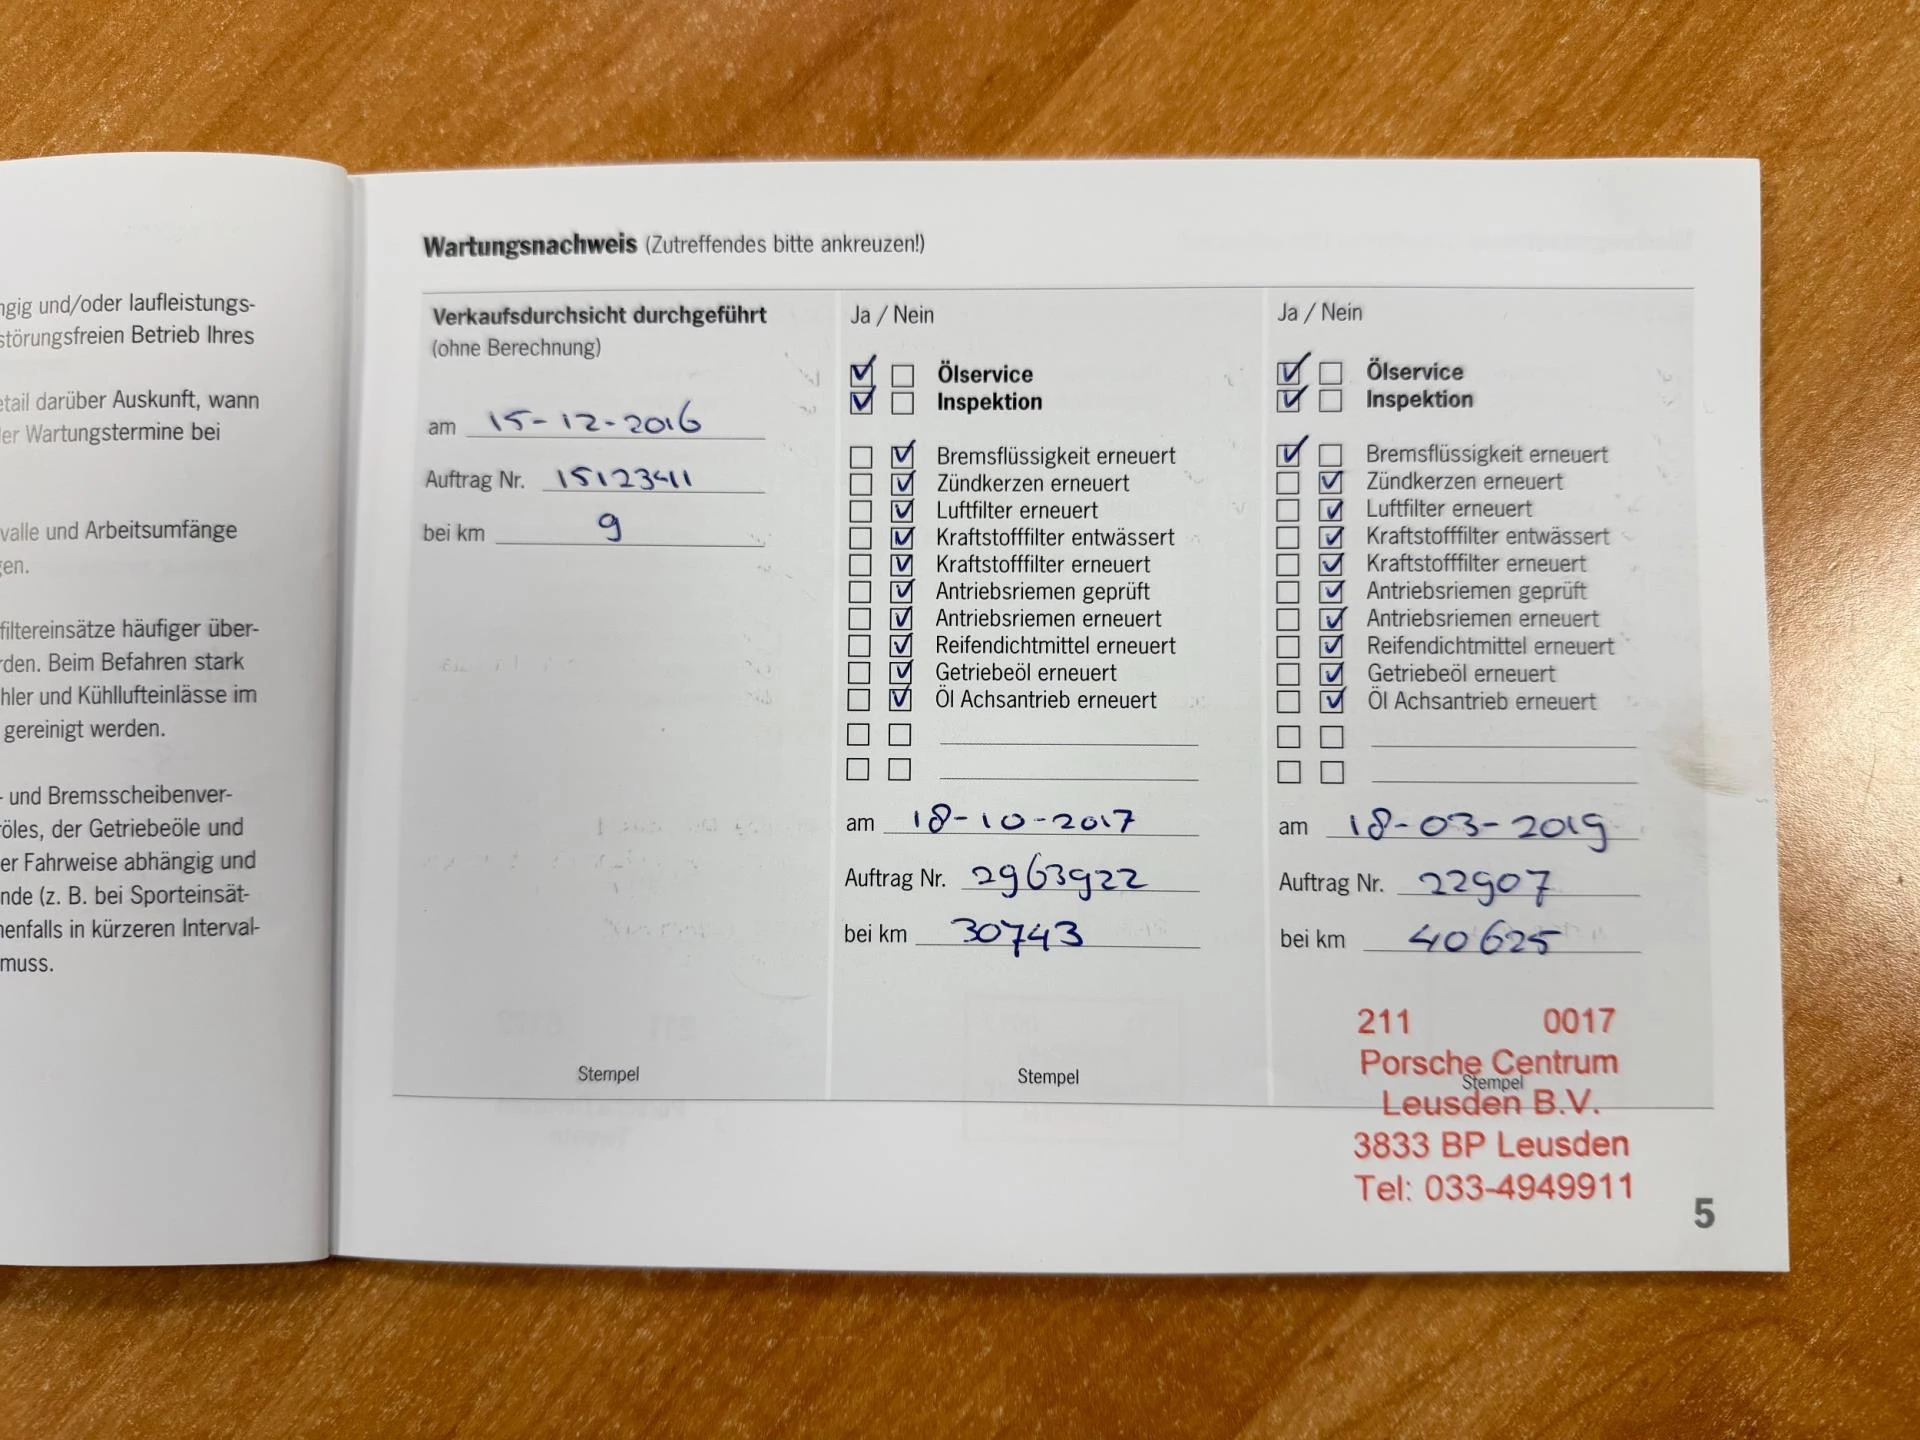 ngig und/oder laufleistungs-
störungsfreien Betrieb Ihres
etail darüber Auskunft, wann
er Wartungstermine bei
valle und Arbeitsumfänge
gen.
filtereinsätze häufiger über-
rden. Beim Befahren stark
hler und Kühllufteinlässe im
gereinigt werden.
- und Bremsscheibenver-
öles, der Getriebeöle und
er Fahrweise abhängig und
nde (z. B. bei Sporteinsät-
nenfalls in kürzeren Interval-
muss.
Wartungsnachweis (Zutreffendes bitte ankreuzen!)
Verkaufsdurchsicht durchgeführt
(ohne Berechnung)
am 15-12-2016
Auftrag Nr. 15123411
bei km 9
Stempel
Ja / Nein
Ölservice
Inspektion
Bremsflüssigkeit erneuert
Zündkerzen erneuert
Luftfilter erneuert
Kraftstofffilter entwässert
Kraftstofffilter erneuert
Antriebsriemen geprüft
Antriebsriemen erneuert
Reifendichtmittel erneuert
Getriebeöl erneuert
Öl Achsantrieb erneuert
am 18-10-2017
Auftrag Nr. 2963922
bei km 30743
Stempel
Ja / Nein
Ölservice
Inspektion
Bremsflüssigkeit erneuert
Zündkerzen erneuert
Luftfilter erneuert
Kraftstofffilter entwässert
Kraftstofffilter erneuert
Antriebsriemen geprüft
Antriebsriemen erneuert
Reifendichtmittel erneuert
Getriebeöl erneuert
Öl Achsantrieb erneuert
am 18-03-2019
Auftrag Nr. 22907
bei km 40625
211 0017
Porsche Centrum
Stempel
Leusden B.V.
3833 BP Leusden
Tel: 033-4949911
5